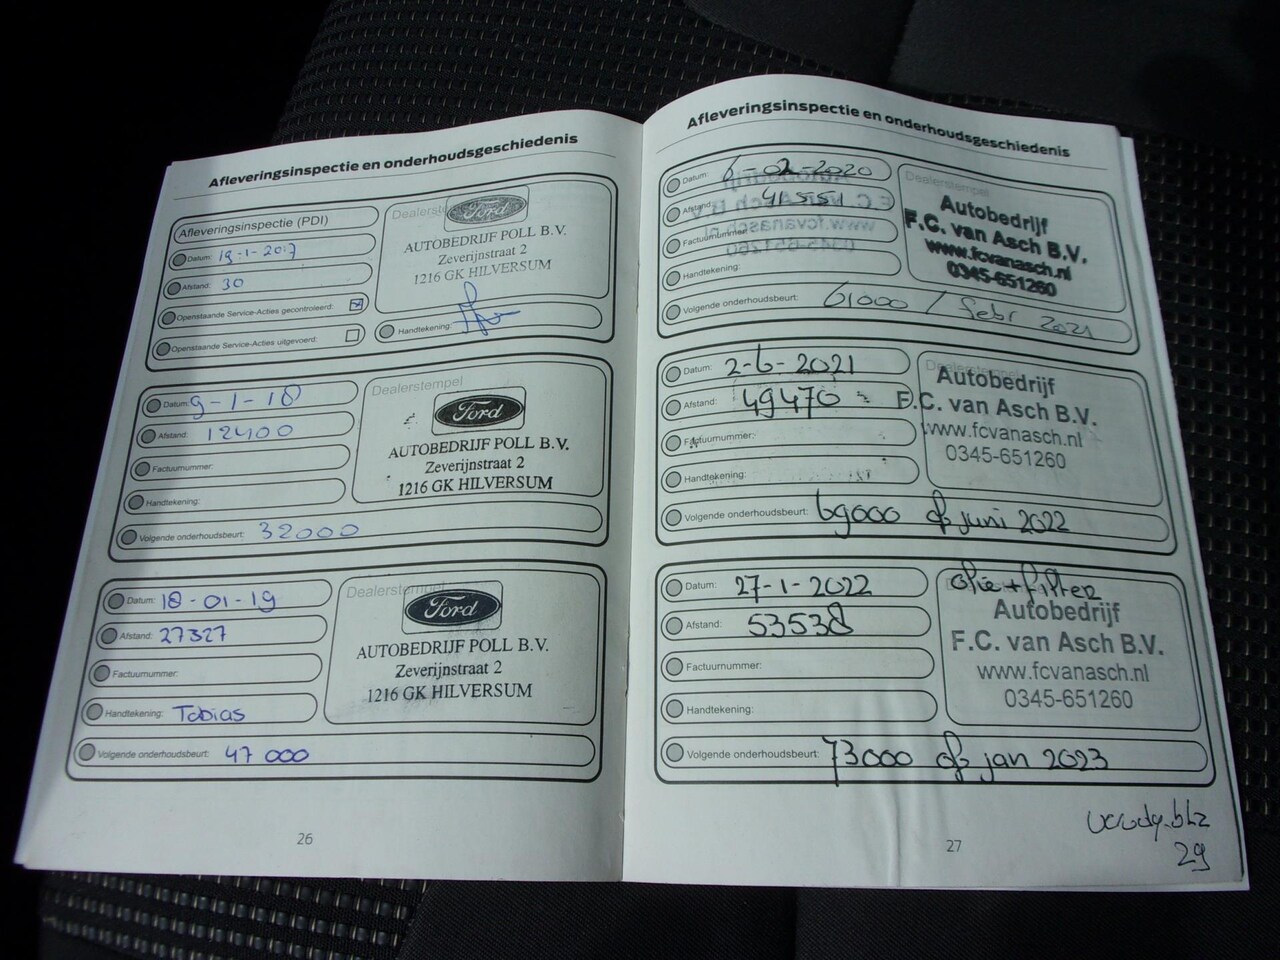 Afleveringsinspectie en onderhoudsgeschiedenis
Afleveringsinspectie (PDI)
Datum: 19-1-2017
Afstand: 30
Openstaande Service-Acties gecontroleerd:
Openstaande Service-Acties uitgevoerd:
Ford
AUTOBEDRIJF POLL B.V.
Zeverijnstraat 2
1216 GK HILVERSUM
Handtekening:
Datum: 9-1-18
Afstand: 12400
Factuurnummer:
Handtekening:
Volgende onderhoudsbeurt: 32000
Dealerstempel
Ford
AUTOBEDRIJF POLL B.V.
Zeverijnstraat 2
1216 GK HILVERSUM
Datum: 18-01-19
Afstand: 27327
Factuurnummer:
Handtekening: Tobias
Volgende onderhoudsbeurt: 47 000
Dealerstempel
Ford
AUTOBEDRIJF POLL B.V.
Zeverijnstraat 2
1216 GK HILVERSUM
26
Afleveringsinspectie en onderhoudsgeschiedenis
Datum: 6-02-2020
Afstand: 41551
Factuurnummer:
Handtekening:
Volgende onderhoudsbeurt: 61000 / febr 2021
Dealerstempel
Autobedrijf
F.C. van Asch B.V.
www.fcvanasch.nl
0345-651260
Datum: 2-6-2021
Afstand: 49470
Factuurnummer:
Handtekening:
Volgende onderhoudsbeurt: 69000 of juni 2022
Autobedrijf
F.C. van Asch B.V.
www.fcvanasch.nl
0345-651260
Datum: 27-1-2022
Afstand: 53538
Factuurnummer:
Handtekening:
Volgende onderhoudsbeurt: 73000 of jan 2023
olie + filter
Autobedrijf
F.C. van Asch B.V.
www.fcvanasch.nl
0345-651260
27
blz
29